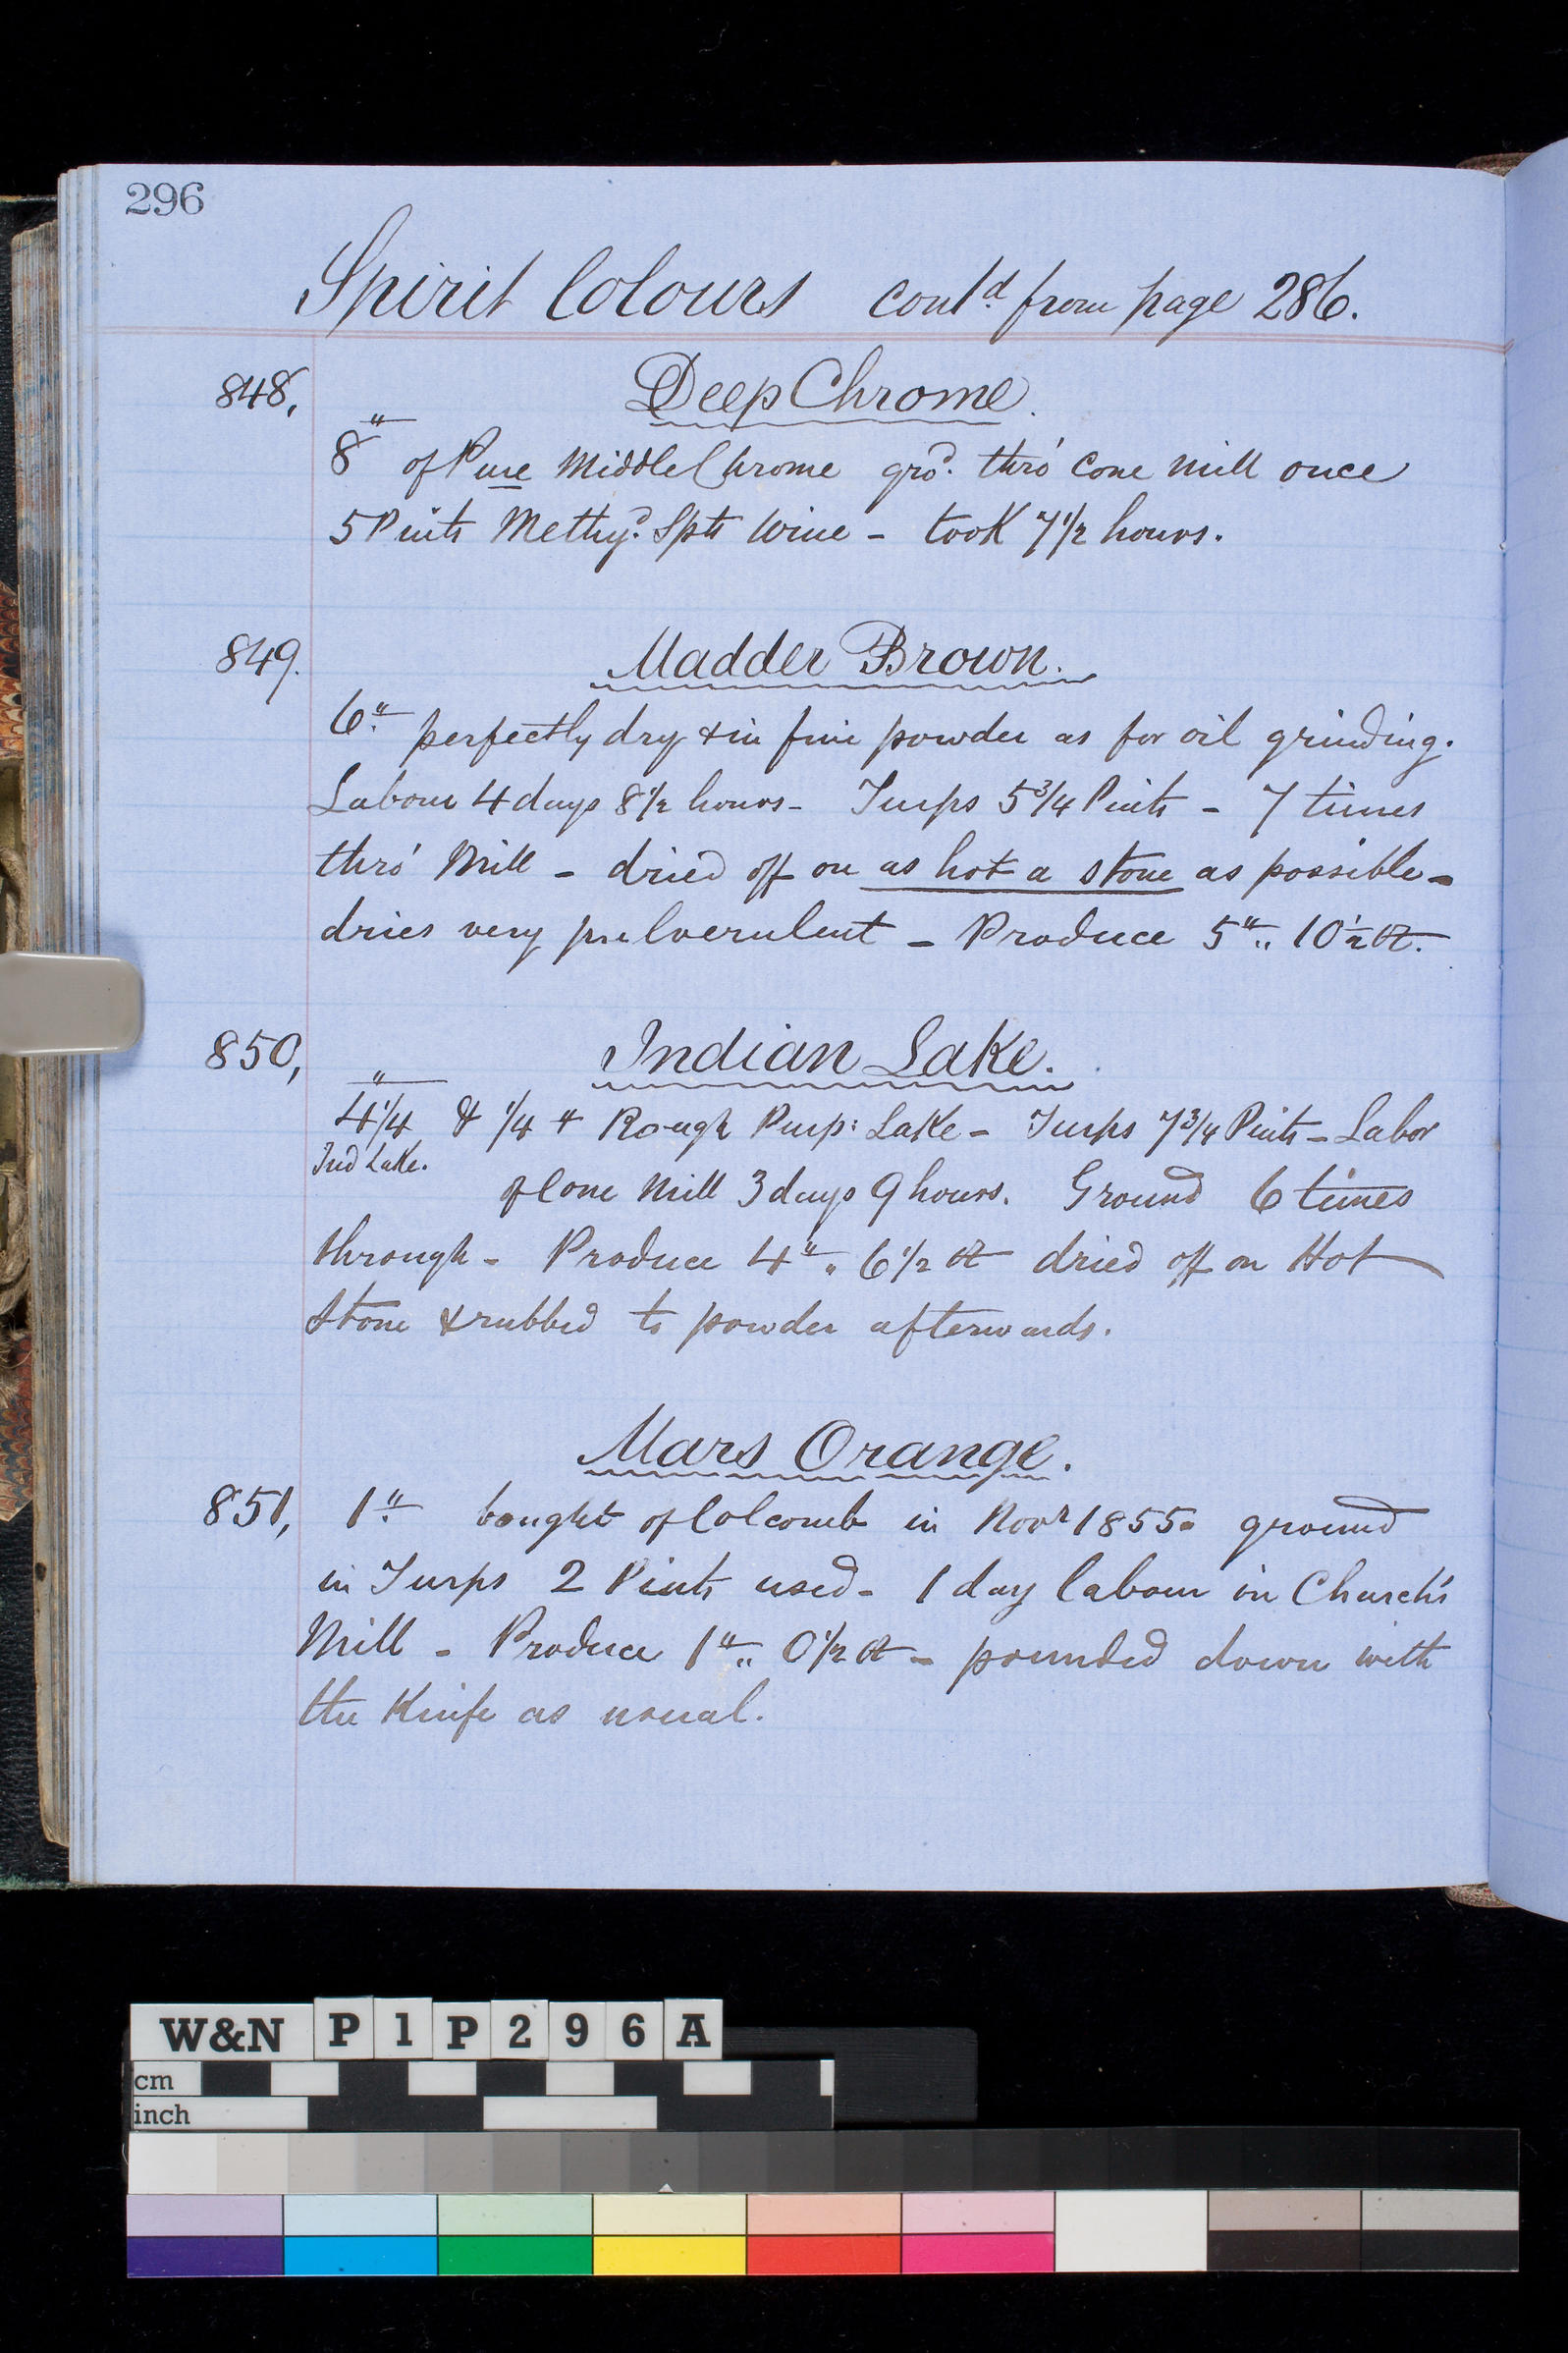 296
Spirit Colours contd. from page 286.
848, Deep Chrome.
8" of Pure Middle Chrome grd. thro' Cone Mill once
5 Pints Methyd. Spts Wine - took 7 1/2 hours.
849. Madder Brown.
6" perfectly dry & in fine powder as for oil grinding.
Labour 4 days 8 1/2 hours - Turps 5 3/4 Pints - 7 times
thro' Mill - dried off on as hot a stone as possible -
dries very pulverulent - Produce 5",, 10 1/2 oz.
850, Indian Lake.
4 1/4" & 1/4 " Rough Purp: Lake - Turps 7 3/4 Pints - Labor
Ind Lake.
of Cone Mill 3 days 9 hours. Ground 6 times
through - Produce 4",, 6 1/2 oz dried off on Hot
Stone & rubbed to powder afterwards.
Mars Orange.
851, 1" bought of Colcomb in Novr 1855 - ground
in Turps 2 Pints used - 1 day labour in Church's
Mill - Produce 1",, 0 1/2 oz - pounded down with
the Knife as usual.
W&N P1P296A
cm
inch